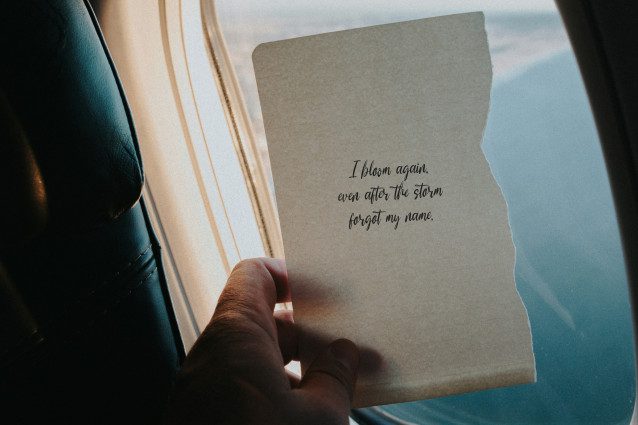 I bloom again,
even after the storm
forgot my name.